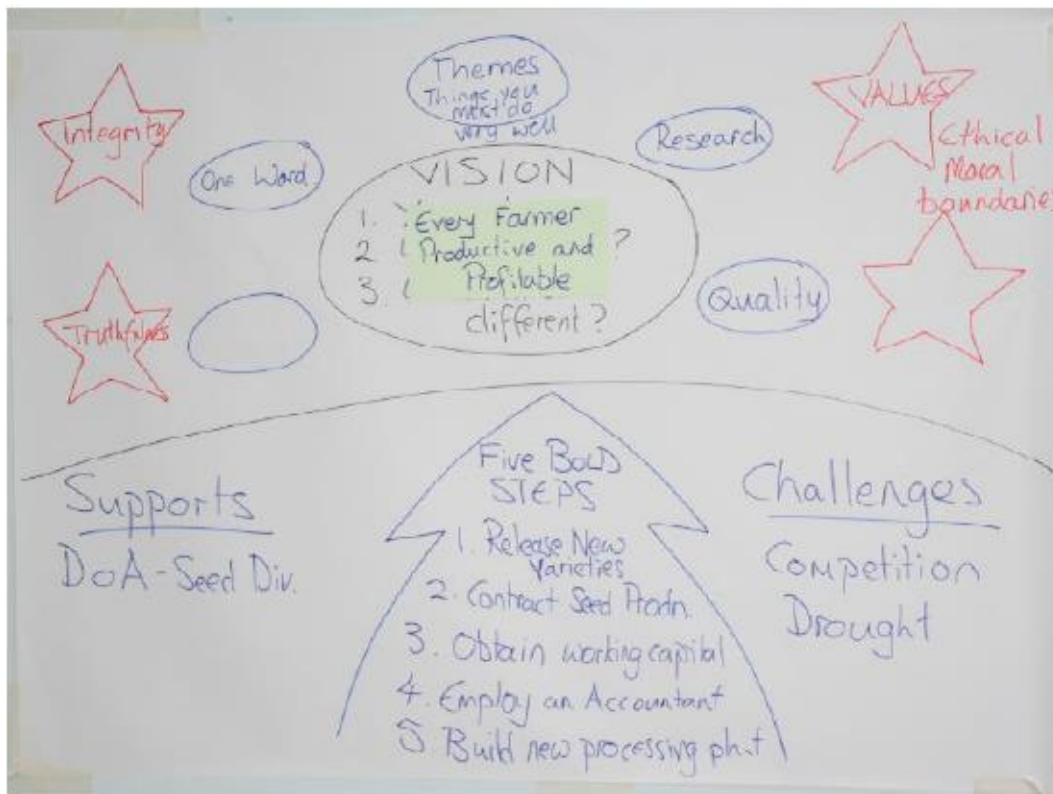 Themes
Things you
must do
very well
Integrity
One Word
Research
VALUES
Ethical
Moral
boundaries
VISION
1.
2
3
Every Farmer
Productive and
Profilable
?
different?
Truthfulness
Quality
Supports
DoA-Seed Div.
Five BOLD
STEPS
1. Release New
Varieties
2. Contract Seed Prodn.
3. Obtain working capital
4. Employ an Accountant
5. Build new processing plant
Challenges
Competition
Drought